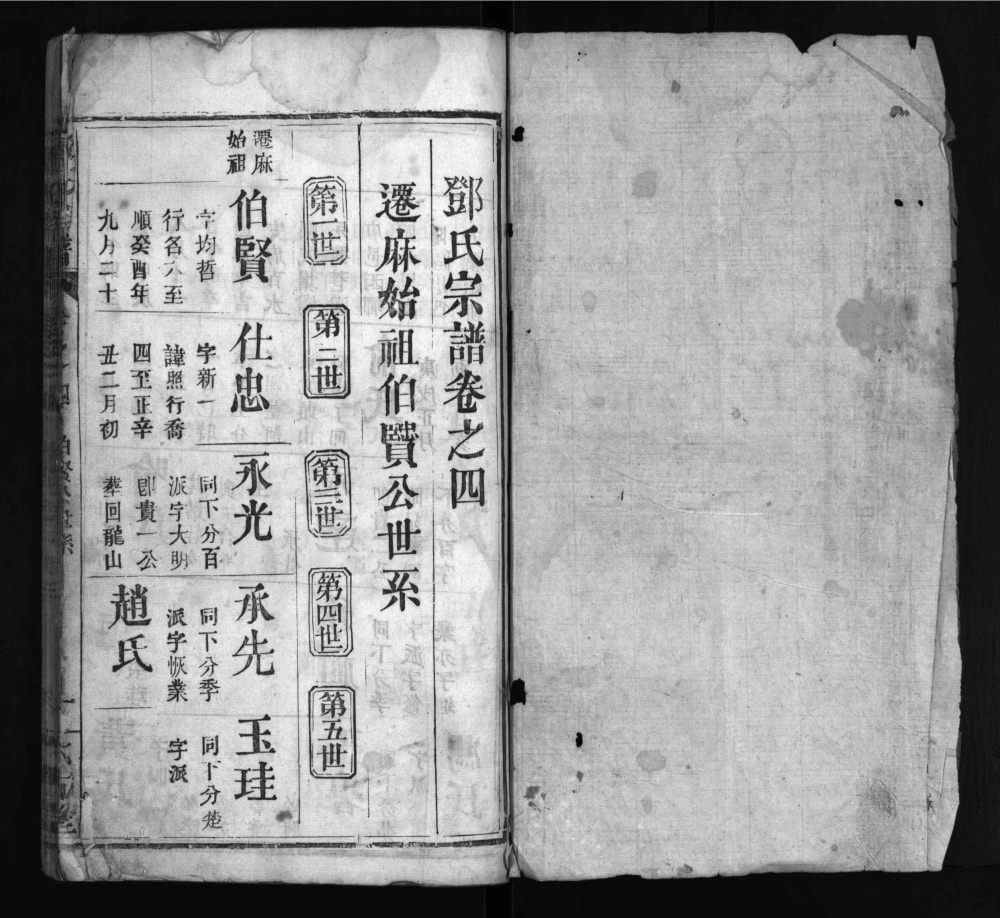 鄧氏宗譜卷之四
遷麻始祖伯賢公世系
第一世
第二世
第三世
第四世
第五世
遷麻
始祖
伯賢
字均哲
行各六至
順癸酉年
九月二十
仕忠
字新一
諱照行喬
四至正辛
丑二月初
永光
同下分百
派字大明
卽貴一公
葬回龍山
承先
同下分季
派字恢業
趙氏
玉珪
同下分楚
字派